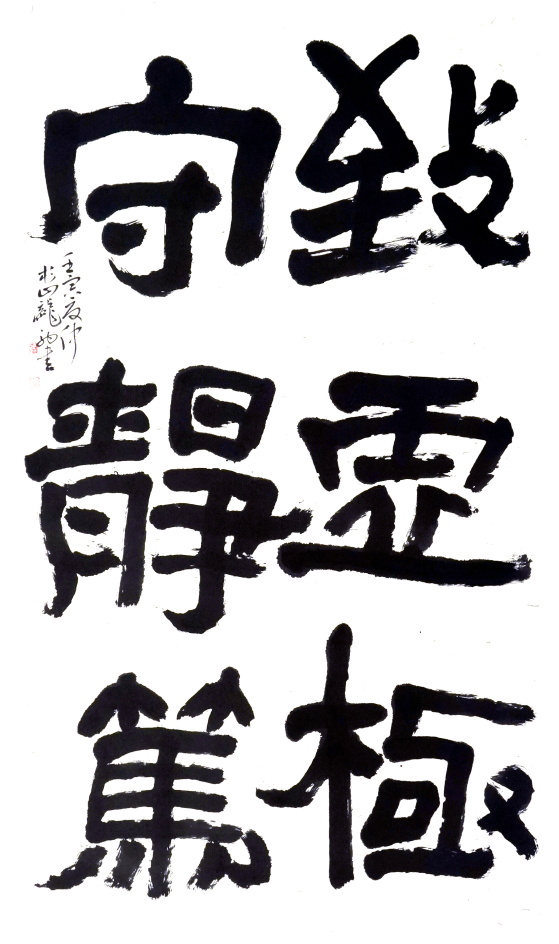 致虛極
守靜篤
壬寅夏仲
於山龍
書